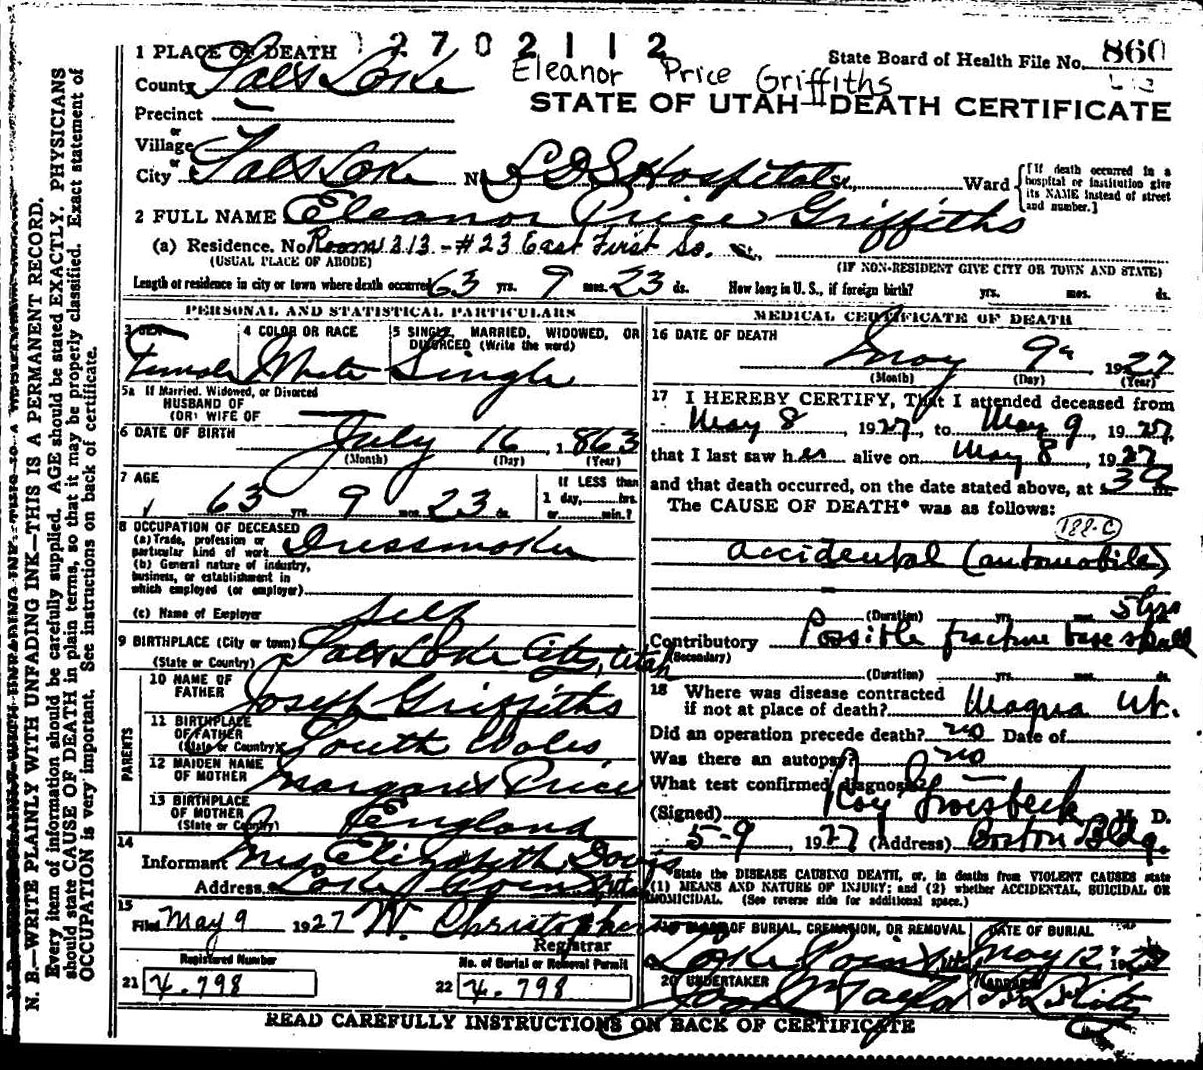 1 PLACE OF DEATH 2702112
State Board of Health File No. 860
County Salt Lake
Eleanor Price Griffiths
STATE OF UTAH—DEATH CERTIFICATE
Precinct
or
Village
or
City Salt Lake No. LDS Hospital St., Ward
[If death occurred in a hospital or institution give its NAME instead of street and number.]
2 FULL NAME Eleanor Price Griffiths
(a) Residence. No. Room 213 - #23 East First So. St.,
(USUAL PLACE OF ABODE) (IF NON-RESIDENT GIVE CITY OR TOWN AND STATE)
Length of residence in city or town where death occurred 63 yrs. 9 mos. 23 ds. How long in U. S., if foreign birth? yrs. mos. ds.
PERSONAL AND STATISTICAL PARTICULARS
3 SEX 4 COLOR OR RACE 5 SINGLE, MARRIED, WIDOWED, OR
DIVORCED (Write the word)
Female White Single
5a If Married, Widowed, or Divorced
HUSBAND OF
(OR) WIFE OF
6 DATE OF BIRTH July 16, 1863
(Month) (Day) (Year)
7 AGE If LESS than
63 yrs. 9 mos. 23 ds. 1 day, hrs.
or min.?
8 OCCUPATION OF DECEASED
(a) Trade, profession or
particular kind of work Dressmaker
(b) General nature of industry,
business, or establishment in
which employed (or employer)
(c) Name of Employer Self
9 BIRTHPLACE (City or town) Salt Lake City, Utah
(State or Country)
PARENTS
10 NAME OF
FATHER Joseph Griffiths
11 BIRTHPLACE
OF FATHER
(State or Country) South Wales
12 MAIDEN NAME
OF MOTHER Margaret Price
13 BIRTHPLACE
OF MOTHER
(State or Country) England
14
Informant Mrs Elizabeth Davis
Address Lake Point Utah
15
Filed May 9 1927 W. Christopherson
Registrar
Registered Number No. of Burial or Removal Permit
21 4.798 22 4.798
MEDICAL CERTIFICATE OF DEATH
16 DATE OF DEATH
May 9, 1927
(Month) (Day) (Year)
17 I HEREBY CERTIFY, That I attended deceased from
May 8, 1927, to May 9, 1927,
that I last saw her alive on May 8, 1927
and that death occurred, on the date stated above, at 3 m.
The CAUSE OF DEATH* was as follows:
188-C
accidental (automobile)
(Duration) yrs. mos. 5 hrs
Contributory Possible fracture base skull
(Secondary)
(Duration) yrs. mos. ds.
18 Where was disease contracted
if not at place of death? Magna Ut.
Did an operation precede death? no Date of
Was there an autopsy? no
What test confirmed diagnosis?
(Signed) Roy Groesbeck M. D.
5-9 1927 (Address) Boston Bldg.
*State the DISEASE CAUSING DEATH, or, in deaths from VIOLENT CAUSES state
(1) MEANS AND NATURE OF INJURY; and (2) whether ACCIDENTAL, SUICIDAL OR
HOMICIDAL. (See reverse side for additional space.)
19 PLACE OF BURIAL, CREMATION, OR REMOVAL DATE OF BURIAL
Lake Point Ut. May 12, 1927
20 UNDERTAKER ADDRESS
READ CAREFULLY INSTRUCTIONS ON BACK OF CERTIFICATE
N. B.—WRITE PLAINLY WITH UNFADING INK—THIS IS A PERMANENT RECORD.
Every item of information should be carefully supplied. AGE should be stated EXACTLY. PHYSICIANS
should state CAUSE OF DEATH in plain terms, so that it may be properly classified. Exact statement of
OCCUPATION is very important. See instructions on back of certificate.